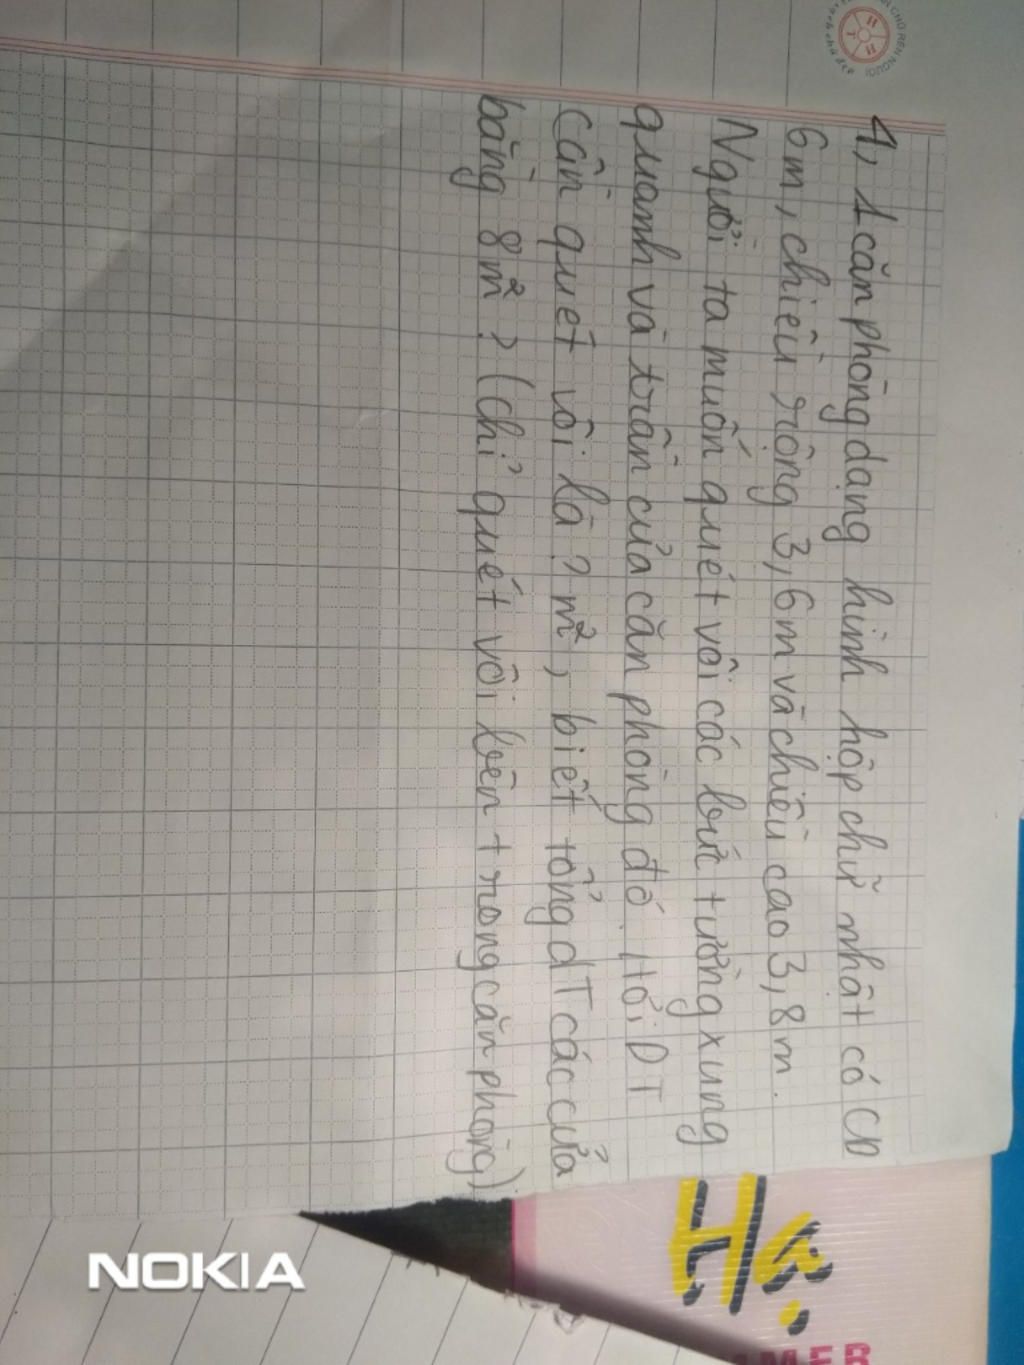 1, 1 căn phòng dạng hình hộp chữ nhật có CD
6m, chiều rộng 3,6m và chiều cao 3,8m.
Người ta muốn quét vôi các bức tường xung
quanh và trần của căn phòng đó. Hỏi DT
cần quét vôi là ? m², biết tổng dT các cửa
bằng 8m² ? (chỉ quét vôi bên trong căn phòng)
NOKIA